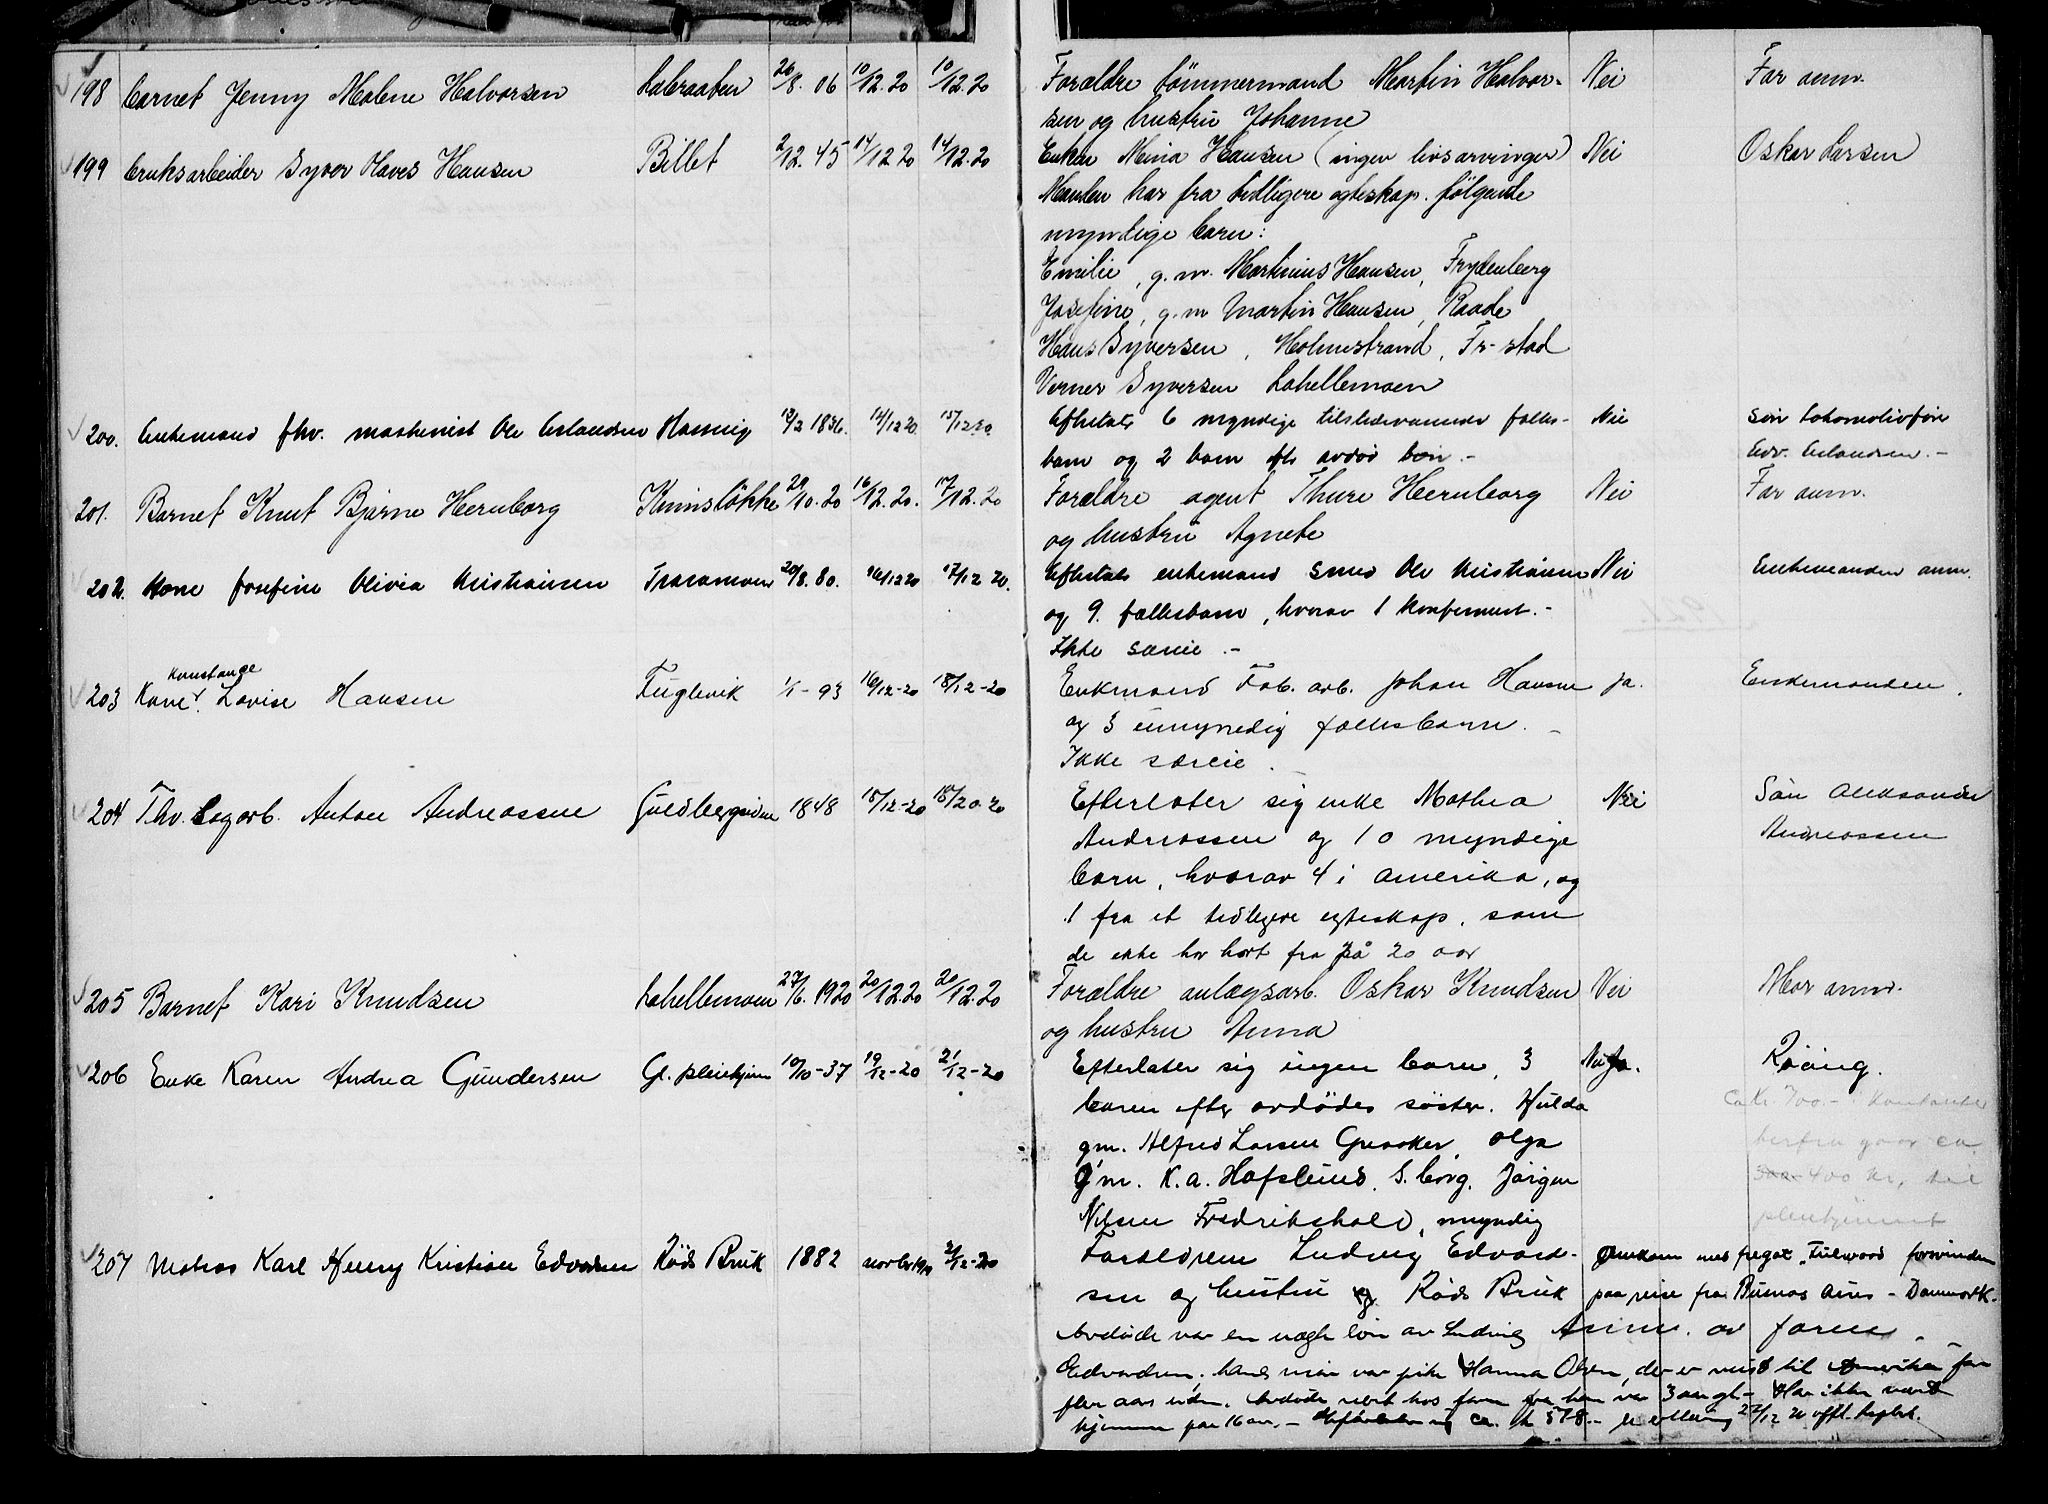 198 barnet Jenny Malene Halvorsen Labraaten 26/8. 06 10/12.20 10/12.20 Forældre tömmermand Martin Halvor- Nei Far anm.
sen og hustru Johanne
199 bruksarbeider Syver Olaves Hansen Billet 2/12. 45 14/12 20 14/12.20 Enken Mina Hansen (ingen livsarvinger) Nei Oskar Larsen
Manden har fra tidligere egteskap følgende
myndige barn:
Emilie, g.m. Martinius Hansen, Frydenberg
Josefine, g.m Martin Hansen, Raade
Hans Syversen, Holmestrand, Fr-stad
Verner Syversen Lahellemoen
200. Enkemand fhv. maskinist Ole Erlandsen 13/2 1836. 14/12 20. 15/12 20. Efterlater 6 myndige tilstedeværende fælles- Nei Søn lokomotivfører
barn og 2 barn efter avdød Edv. Erlandsen. -
201. Barnet Knut Bjarne Hernborg 29/10.20 16/12.20. 17/12.20 Forældre agent Thure Hernborg Nei Far anm.
og hustru Agnete
202. Kone Josefine Olivia Kristiansen Traramoen 20/8.80. 16/12 20 17/12 20. Efterlater enkemand smed Ole Kristiansen Nei Enkemanden anm.
og 9 fællesbarn, hvorav 1 konfirmert. -
Ikke særeie. -
Konstance
203 Kone Lovise Hansen Fuglevik 1/1-93 16/12-20 18/12-20 Enkmand Fab. arb. Johan Hansen ja. Enkemanden.
og 3 umyndig fællesbarn. -
Ikke særeie.
204 Fhv. Sagarb. Anton Andreassen Guldbergsiden 1848 15/12-20 18/20.20 Efterlater sig enke Mathea Nei Søn Aleksander
Andreassen og 10 myndige Andreassen
barn, hvorav 4 i Amerika, og
1 fra et tidligere egteskap, som
de ikke har hørt fra på 20 aar
205 Barnet Kari Knudsen Lahellemoen 27/6. 1920 20/12.20 20/12.20 Forældre anlægsarb. Oskar Knudsen Nei Mor anm.
og hustru Anna
206 Enke Karen Andrea Gundersen Gl. pleiehjem 10/10-37 19/12-20 21/12-20 Efterlater sig ingen barn, 3 Nei Ja. Röing.
barn efter avdødes søster. Hulda Ca kr. 700.- i kontanter
gm. Alfred Larsen Greaker, Olga herfra gaar ca
gm. K.A. Hafslund. S.borg. Jørgen 300 400 kr, til
Nilsen Fredrikshald, myndig pleiehjemmet
207 Matros Karl Henry Kristian Edvardsen Röds Bruk 1882 21/12-20 Forældrene Ludvig Edvard- Omkom med fregat "Fulwood" forsvinden
sen og hustru og Röds Bruk paa reise fra Buenos Aires - Danmark.
Avdøde var en uegte søn av Ludvig Anm. av faren.
Edvardsen, hans mor var pike Hanna Olsen, der er reist til Amerika for
flere aar siden. Avdøde været hos faren fra han var 3 aar gl. - Har ikke været
hjemme paa 16 aar. - Efterlater sig ca. kr 578.- 27/12 20